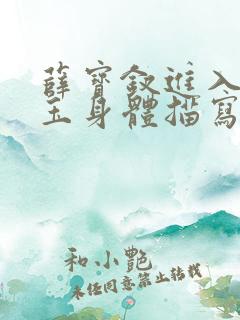 薛寶釵進入
玉身體描寫
和小艷
未经同意禁止转载